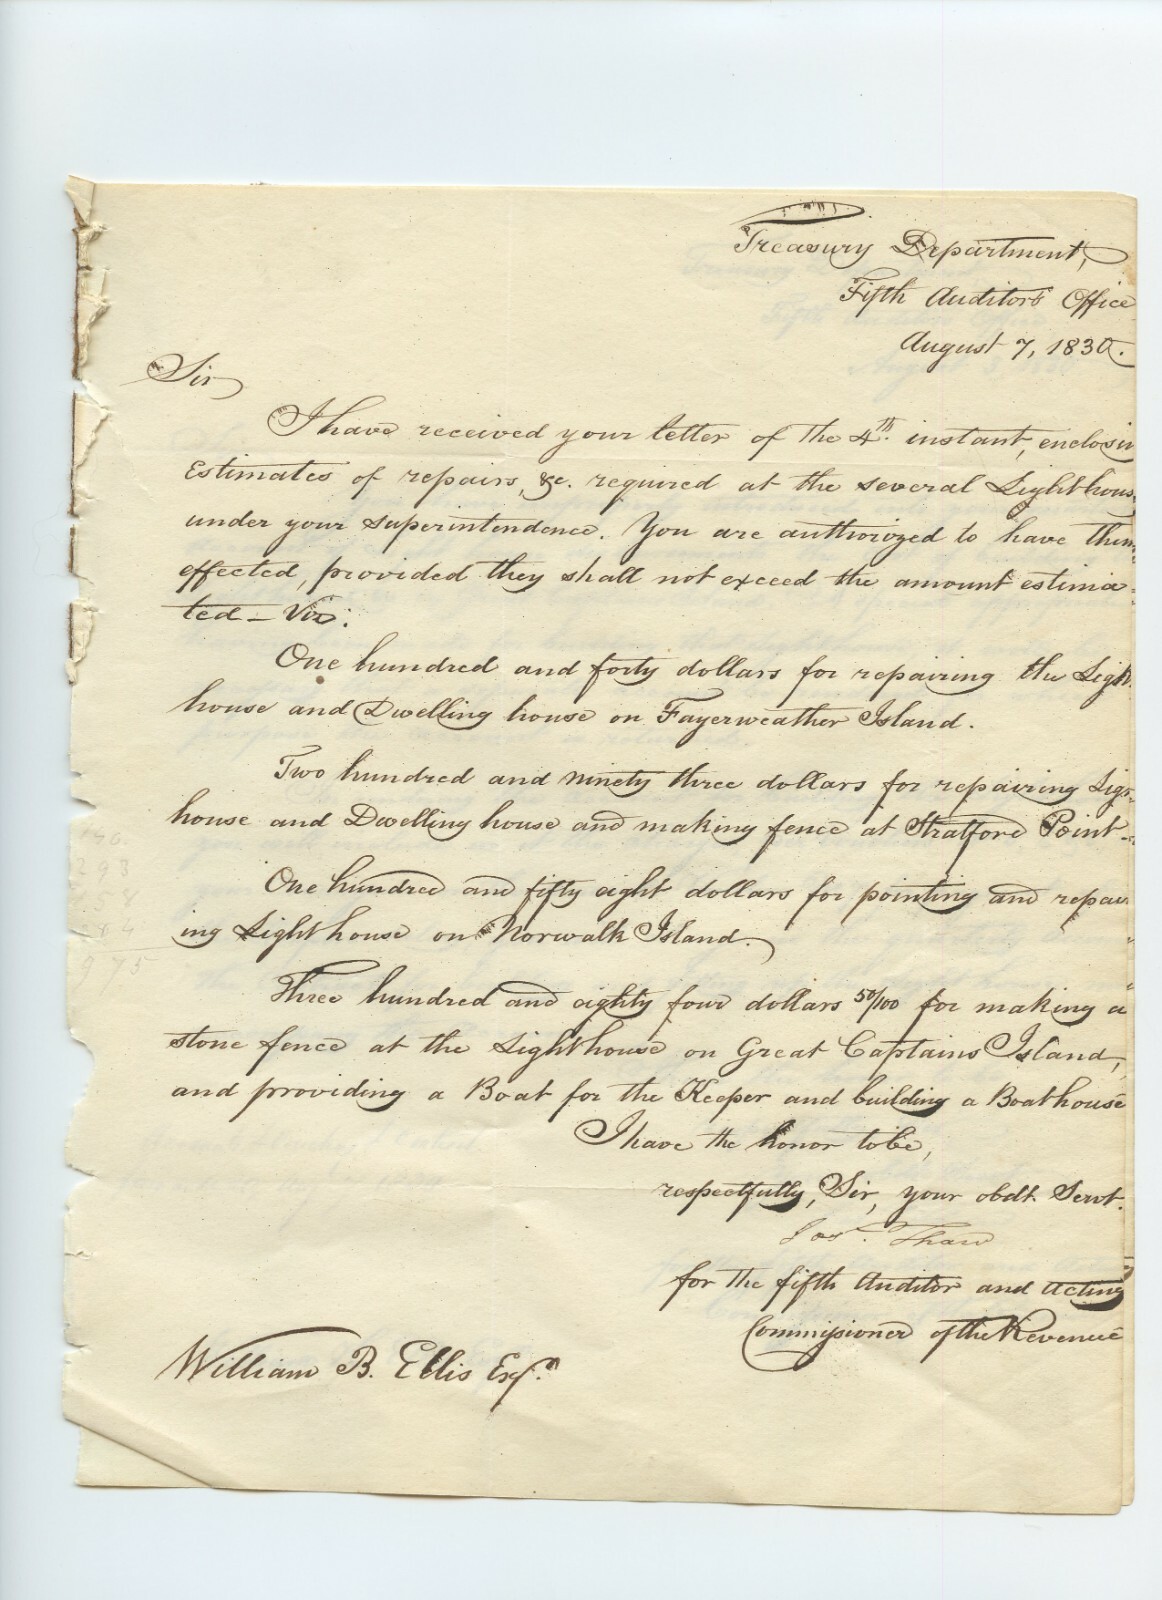 Treasury Department,
Fifth Auditor's Office
August 7, 1830.
Sir
I have received your letter of the 4th. instant, enclosin
Estimates of repairs, &c. required at the several Lighthous
under your superintendence. You are authorized to have them
effected, provided they shall not exceed the amount estima-
ted – Viz:
One hundred and forty dollars for repairing the Light
house and Dwelling house on Fayerweather Island.
Two hundred and ninety three dollars for repairing Ligh
house and Dwelling house and making fence at Stratford Point-
One hundred and fifty eight dollars for pointing and repair
ing Lighthouse on Norwalk Island.
Three hundred and eighty four dollars 50/100 for making a
stone fence at the Lighthouse on Great Captains Island,
and providing a Boat for the Keeper and building a Boathouse
I have the honor to be,
respectfully, Sir, your obdt. Servt.
Jos. Thaw
for the fifth Auditor and Acting
Commissioner of the Revenue
William B. Ellis Esqr.
140
293
84
975